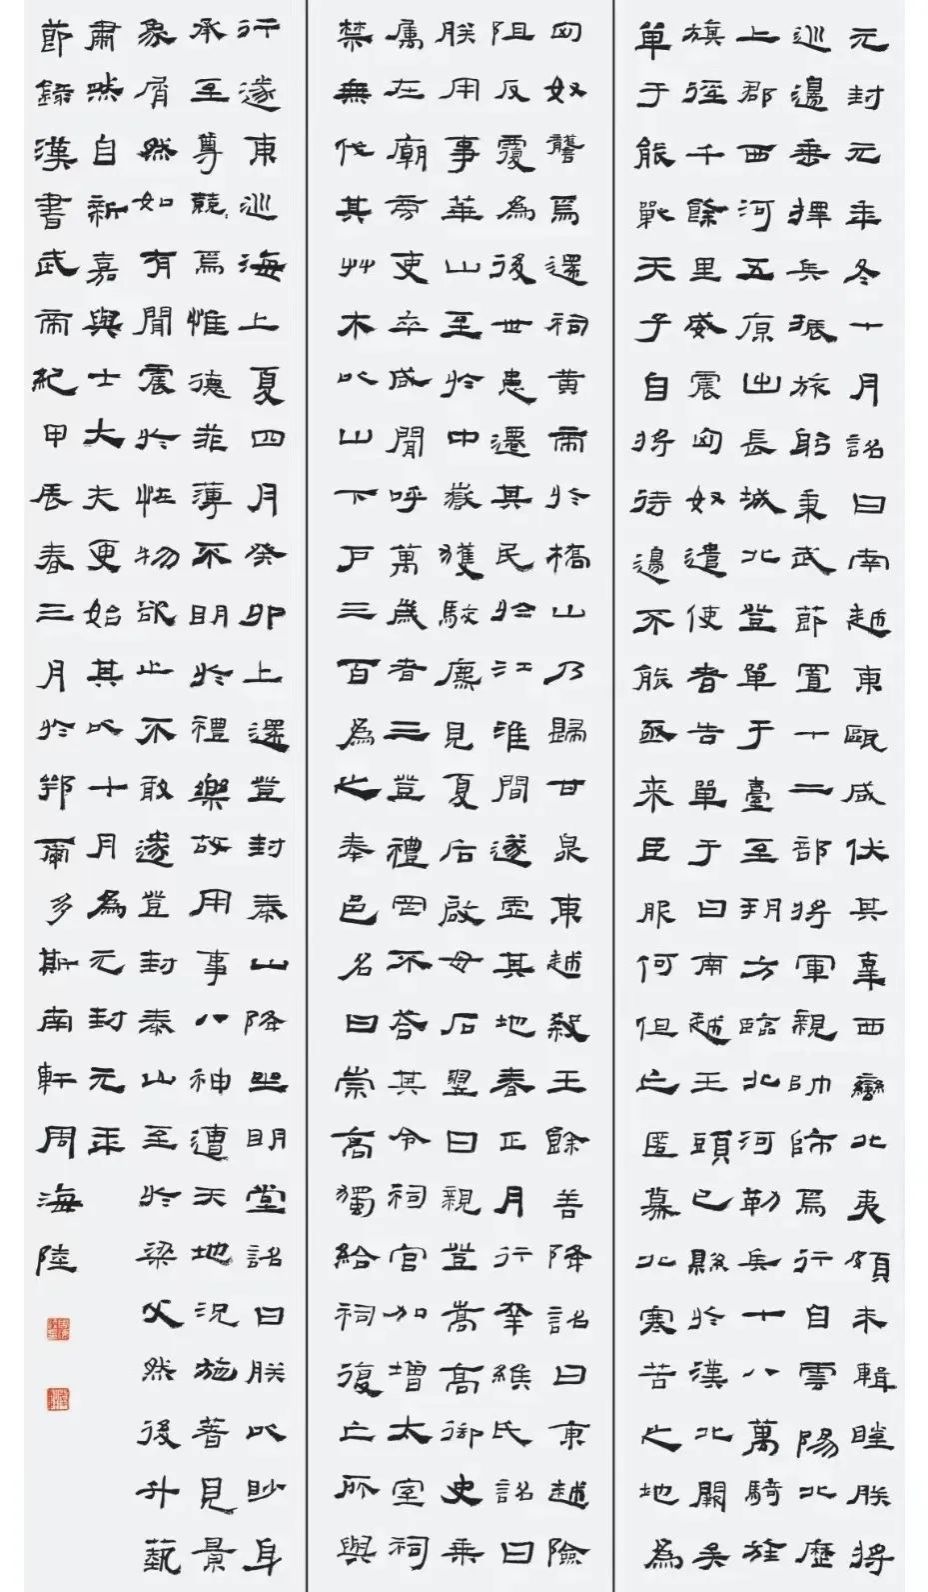 元封元年冬十月詔曰南越東甌咸伏其辜西蠻北夷頗未輯睦朕將
巡邊垂擇兵振旅躬秉武節置十二部將軍親帥師焉行自雲陽北歷
上郡西河五原出長城北登單于臺至朔方臨北河勒兵十八萬騎旌
旗徑千餘里威震匈奴遣使者告單于曰南越王頭已縣於漢北闕矣
單于能戰天子自將待邊不能亟來臣服何但亡匿幕北寒苦之地為
匈奴讋焉還祠黃帝於橋山乃歸甘泉東越殺王餘善降詔曰東越險
阻反覆為後世患遷其民於江淮間遂虛其地春正月行幸緱氏詔曰
朕用事華山至於中嶽獲駮麃見夏后啟母石翌日親登嵩高御史乘
屬在廟旁吏卒咸聞呼萬歲者三登禮罔不答其令祠官加增太室祠
禁無伐其艸木以山下戶三百為之奉邑名曰崇高獨給祠復亡所與
行遂東巡海上夏四月癸卯上還登封泰山降坐明堂詔曰朕以眇身
承至尊兢〻焉惟德菲薄不明於禮樂故用事八神遭天地況施著見景
象屑然如有聞震於怪物欲止不敢遂登封泰山至於梁父然後升
肅然自新嘉與士大夫更始其以十月為元封元年
節錄漢書武帝紀甲辰春三月於鄂爾多斯南軒周海陸